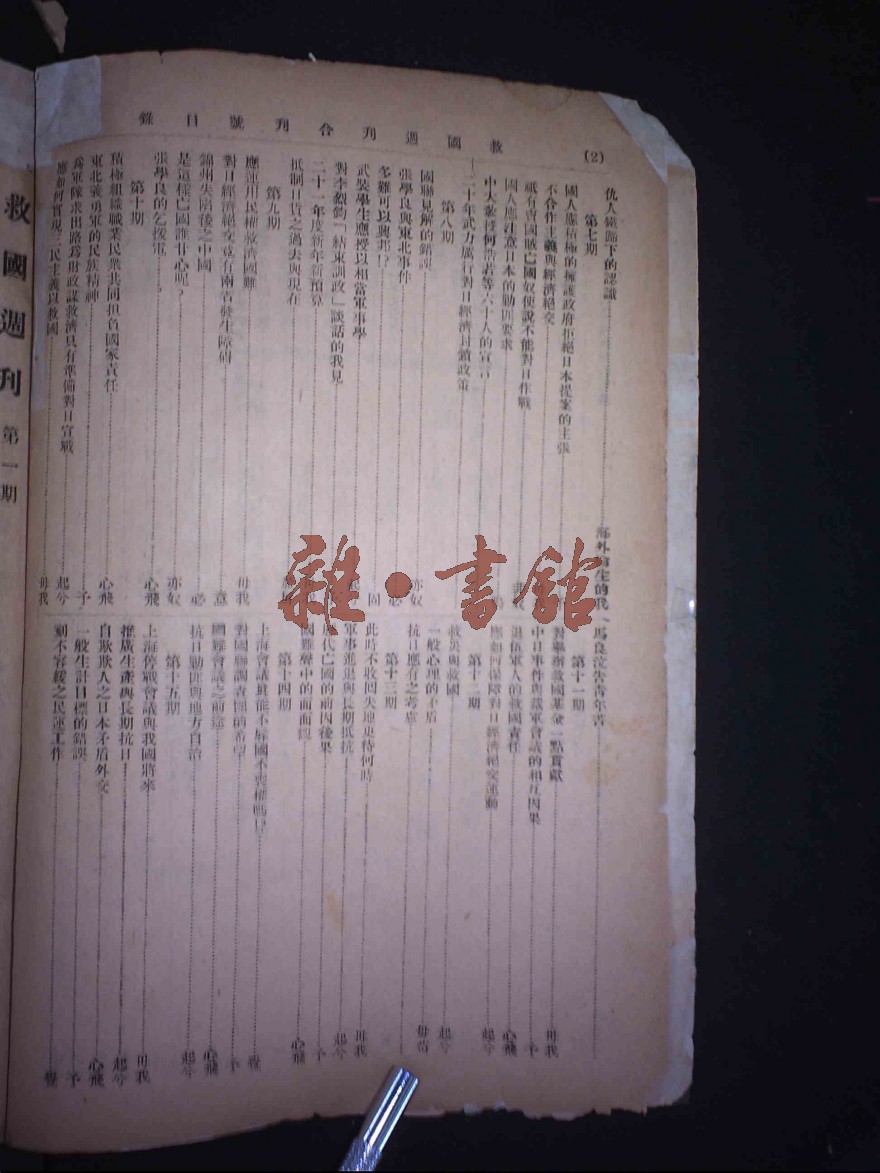 救國週刊合刋號目錄
(2)
仇人鐵蹄下的認識
第七期
國人應積極的擁護政府拒絕日本提案的主張
不合作主義與經濟絕交
祇有賣國賊亡國奴便說不能對日作戰
國人應注意日本的勦匪要求
中大敎授何浩若等六十人的宣言
二十年武力厲行對日經濟封鎖政策
第八期
國聯見解的錯誤
張學良與東北事件
多難可以興邦!?
武裝學生應授以相當軍事學
對李鄒鈞「結束訓政」談話的我見
二十一年度新年新預算
抵制日貨之過去與現在
第九期
應運用民權救濟國難
對日經濟絕交竟有兩省發生障碍
錦州失陷後之中國
是這樣亡國誰甘心呢?
張學良的乞援電
第十期
積極組織職業民衆共同担負國家責任
東北義勇軍的民族精神
爲軍隊求出路爲財政謀救濟只有準備對日宣戰
應如何實現三民主義以救國
亦奴
毋我
意
必
亦奴
心飛
心飛
予
起兮
毋我
海外餘生的我
馬良泣告靑年書
第十一期
對舉辦救國基金一點貢獻
中日事件與裁軍會議的相互因果
退伍軍人的救國責任
應如何保障對日經濟絕交運動
第十二期
救災與救國
一般心理的矛盾
抗日應有之考慮
第十三期
此時不收回失地更待何時
軍事進退與長期抵抗
歷代亡國的前因後果
國難聲中的面面觀
第十四期
上海會議眞能不辱國不喪權嗎!?
對國聯調查團的希望
國難會議之前途
抗日勦匪與地方自治
第十五期
上海停戰會議與我國將來
推廣生產與長期抗日
自欺欺人之日本矛盾外交
一般生計目標的錯誤
刻不容緩之民運工作
毋我
予
心飛
起兮
起兮
毋我
起兮
予
心飛
覺
予
心飛
起兮
毋我
起兮
心飛
予
覺
救國週刊 第一期
雜·書館